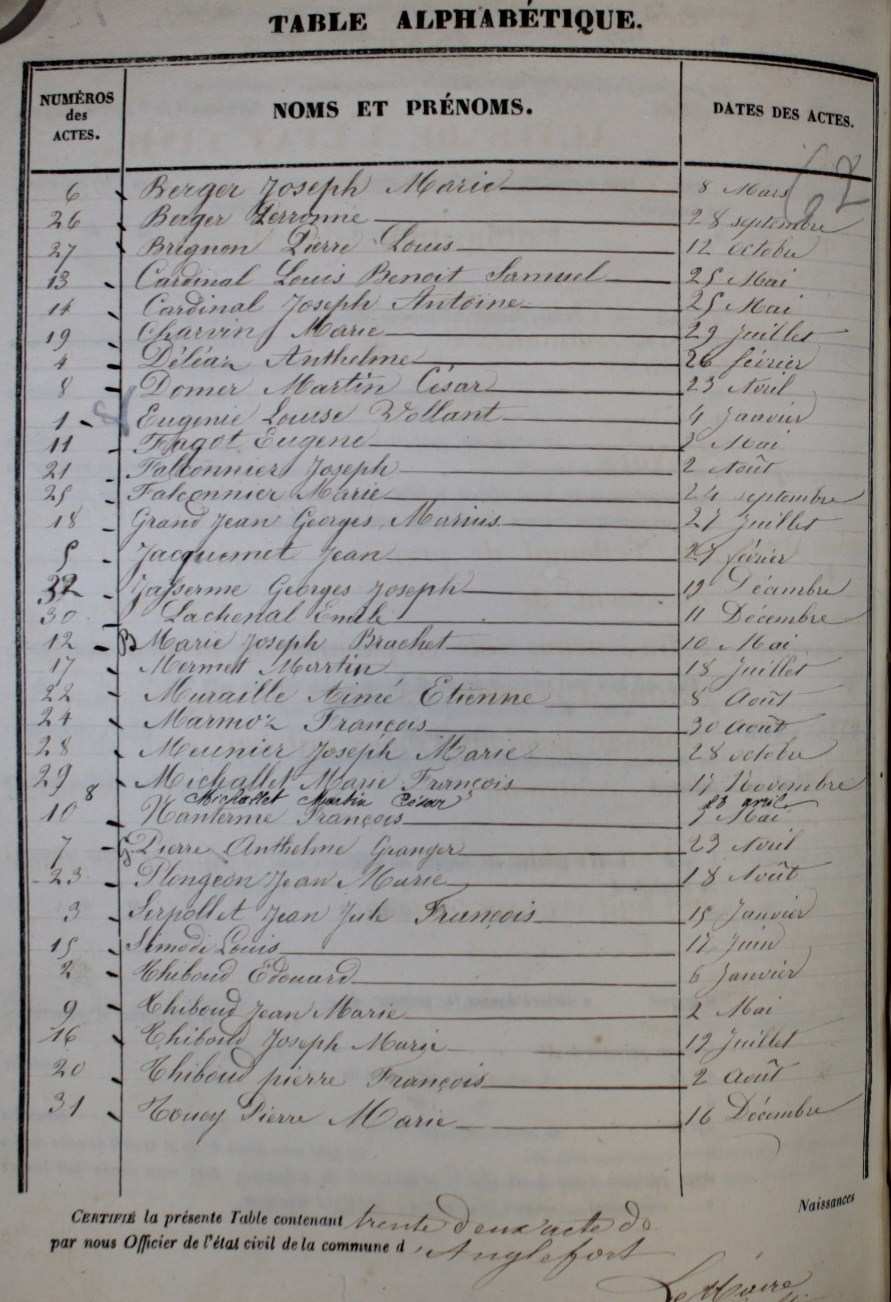 TABLE ALPHABÉTIQUE.
NUMÉROS des ACTES. NOMS ET PRÉNOMS. DATES DES ACTES.
62
6 Berger Joseph Marie 8 Mars
26 Berger Perronne 28 septembre
27 Brignon Pierre Louis 12 octobre
13 Cardinal Louis Benoit Samuel 25 Mai
14 Cardinal Joseph Antoine 25 Mai
19 Charvin Marie 29 Juillet
4 Déléaz Anthelme 26 février
8 Domer Martin César 23 Avril
1 Eugenie Louise Vollant 4 Janvier
11 Fagot Eugene Mai
21 Falconnier Joseph 2 Août
25 Falconnier Marie 24 septembre
18 Grand Jean Georges Marius 27 Juillet
5 Jacquemet Jean 27 février
32 Jasserme Georges Joseph 19 Décambre
30 Lachenal Emile 11 Décembre
12 B Marie Joseph Brachet 10 Mai
17 Mermet Martin 18 Juillet
22 Muraille Aimé Etienne 8 Août
24 Marmoz François 30 Août
28 Meunier Joseph Marie 28 octobre
29 Michallet Marie François 17 Novembre
8 Michallet Martin César 23 avril
10 Nanterme François 7 Mai
7 G Pierre Anthelme Granger 23 Avril
23 Plongeon Jean Marie 18 Août
3 Serpollet Jean Jule François 15 Janvier
15 Simodi Louis 17 Juin
2 Thiboud Edouard 6 Janvier
9 Thiboud Jean Marie 2 Mai
16 Thiboud Joseph Marie 19 Juillet
20 Thiboud pierre François 2 Août
31 Touey Pierre Marie 16 Décembre
Naissances
CERTIFIÉ la présente Table contenant trente deux acte de
par nous Officier de l'état civil de la commune d'Anglefort
Le Maire